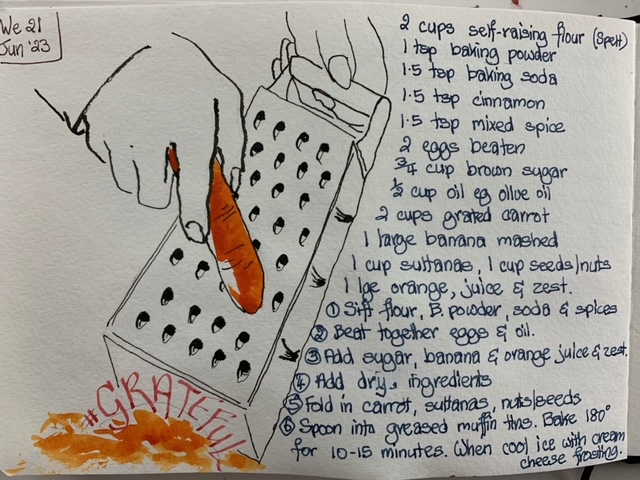 We 21
Jun '23
2 cups self-raising flour (Spelt)
1 tsp baking powder
1.5 tsp baking soda
1.5 tsp cinnamon
1.5 tsp mixed spice
2 eggs beaten
¾ cup brown sugar
½ cup oil eg olive oil
2 cups grated carrot
1 large banana mashed
1 cup sultanas, 1 cup seeds/nuts
1 lge orange, juice & zest.
① Sift flour, B. powder, soda & spices
② Beat together eggs & oil.
③ Add sugar, banana & orange juice & zest.
④ Add dry ingredients
⑤ Fold in carrot, sultanas, nuts/seeds
⑥ Spoon into greased muffin tins. Bake 180°
for 10-15 minutes. When cool ice with cream
cheese frosting.
#GRATEFUL